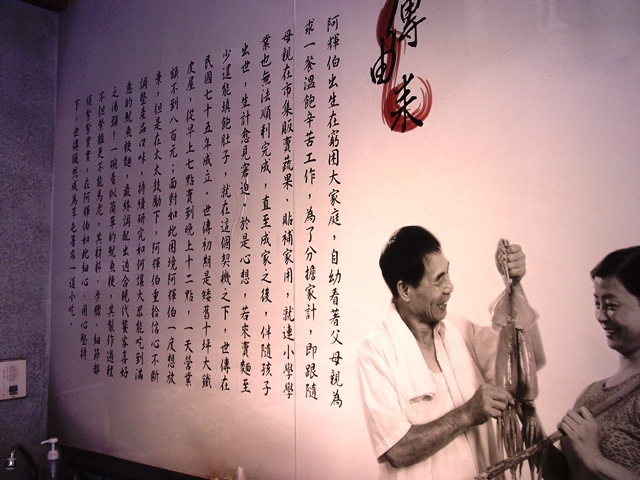 傳
由
來
阿輝伯出生在窮困大家庭，自幼看著父母親為
求一餐溫飽辛苦工作，為了分擔家計，即跟隨
母親在市集販賣蔬果、貼補家用，就連小學學
業也無法順利完成，直至成家之後，伴隨孩子
出世，生計愈見窘迫，於是心想，若來賣麵至
少還能填飽肚子，就在這個契機之下，世傳在
民國七十五年成立，世傳初期是矮舊十坪大鐵
皮屋，從早上七點賣到晚上十二點，一天營業
額不到八百元；面對如此困境阿輝伯一度想放
棄，但是在太太鼓勵下，阿輝伯重拾信心不斷
調整產品口味，持續研究如何讓大眾能吃到滿
意的魷魚羹麵，最終調配出適合現代饕客喜好
之湯頭！一碗看似簡單的魷魚羹，其製作過程
不但繁雜更不能馬虎，其材料、步驟、細節都
須紮紮實實，在阿輝伯如此細心、用心堅持
下，世傳儼然成為草屯著名一道小吃。